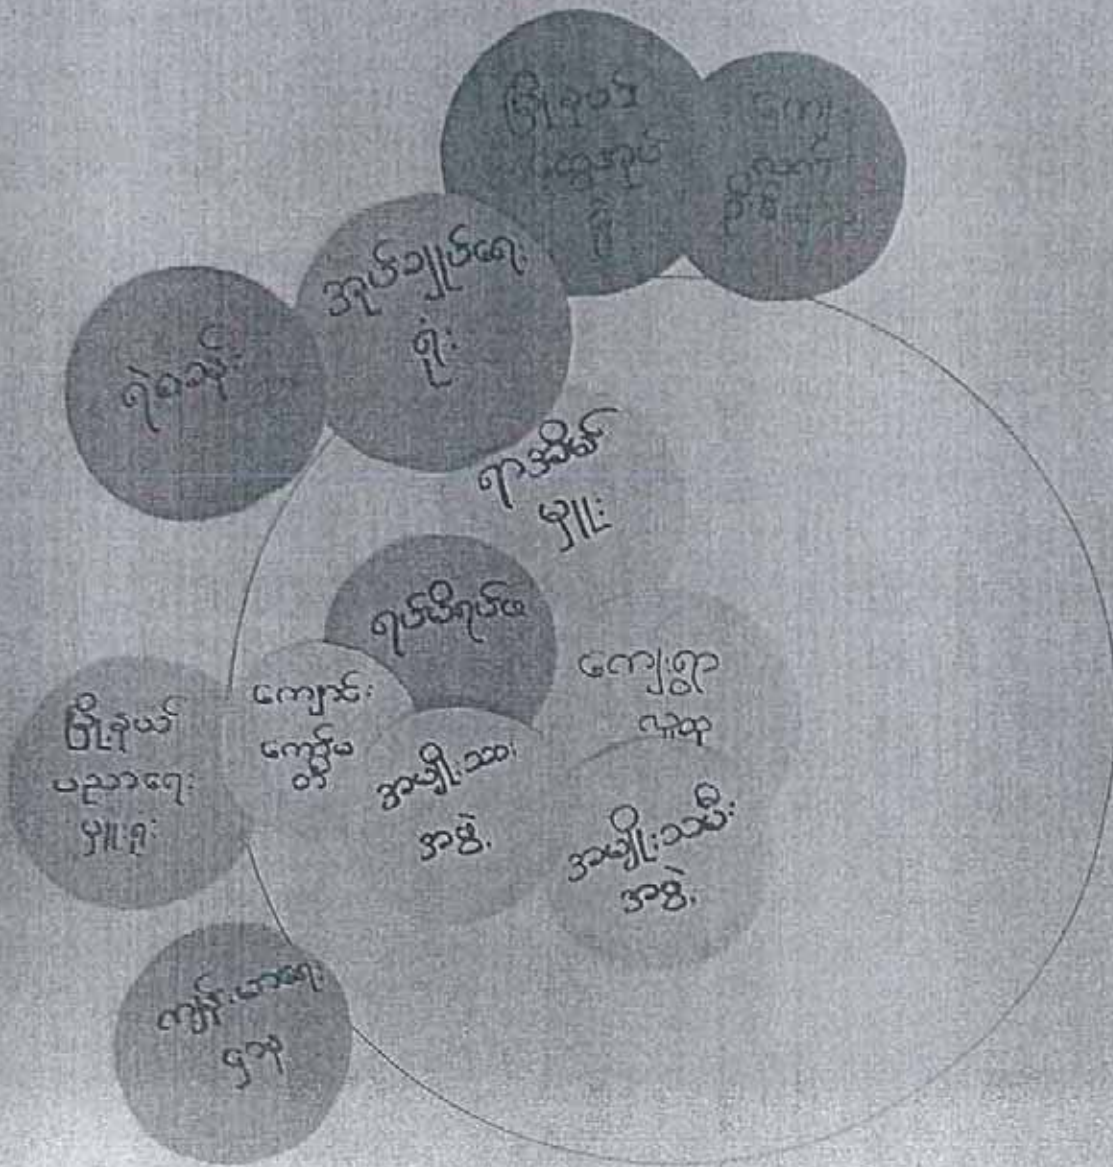 မြို့နယ်
အုပ်ချုပ်ရေး
ရုံး
ရဲစခန်း
ရာအိမ်
မှူး
ရပ်မိရပ်ဖ
ကျေးရွာ
လူထု
ကျောင်း
ကော်မ
တီ
အမျိုးသား
အဖွဲ့
အမျိုးသမီး
အဖွဲ့
မြို့နယ်
ပညာရေး
မှူးရုံး
ကျန်းမာရေး
ဌာန